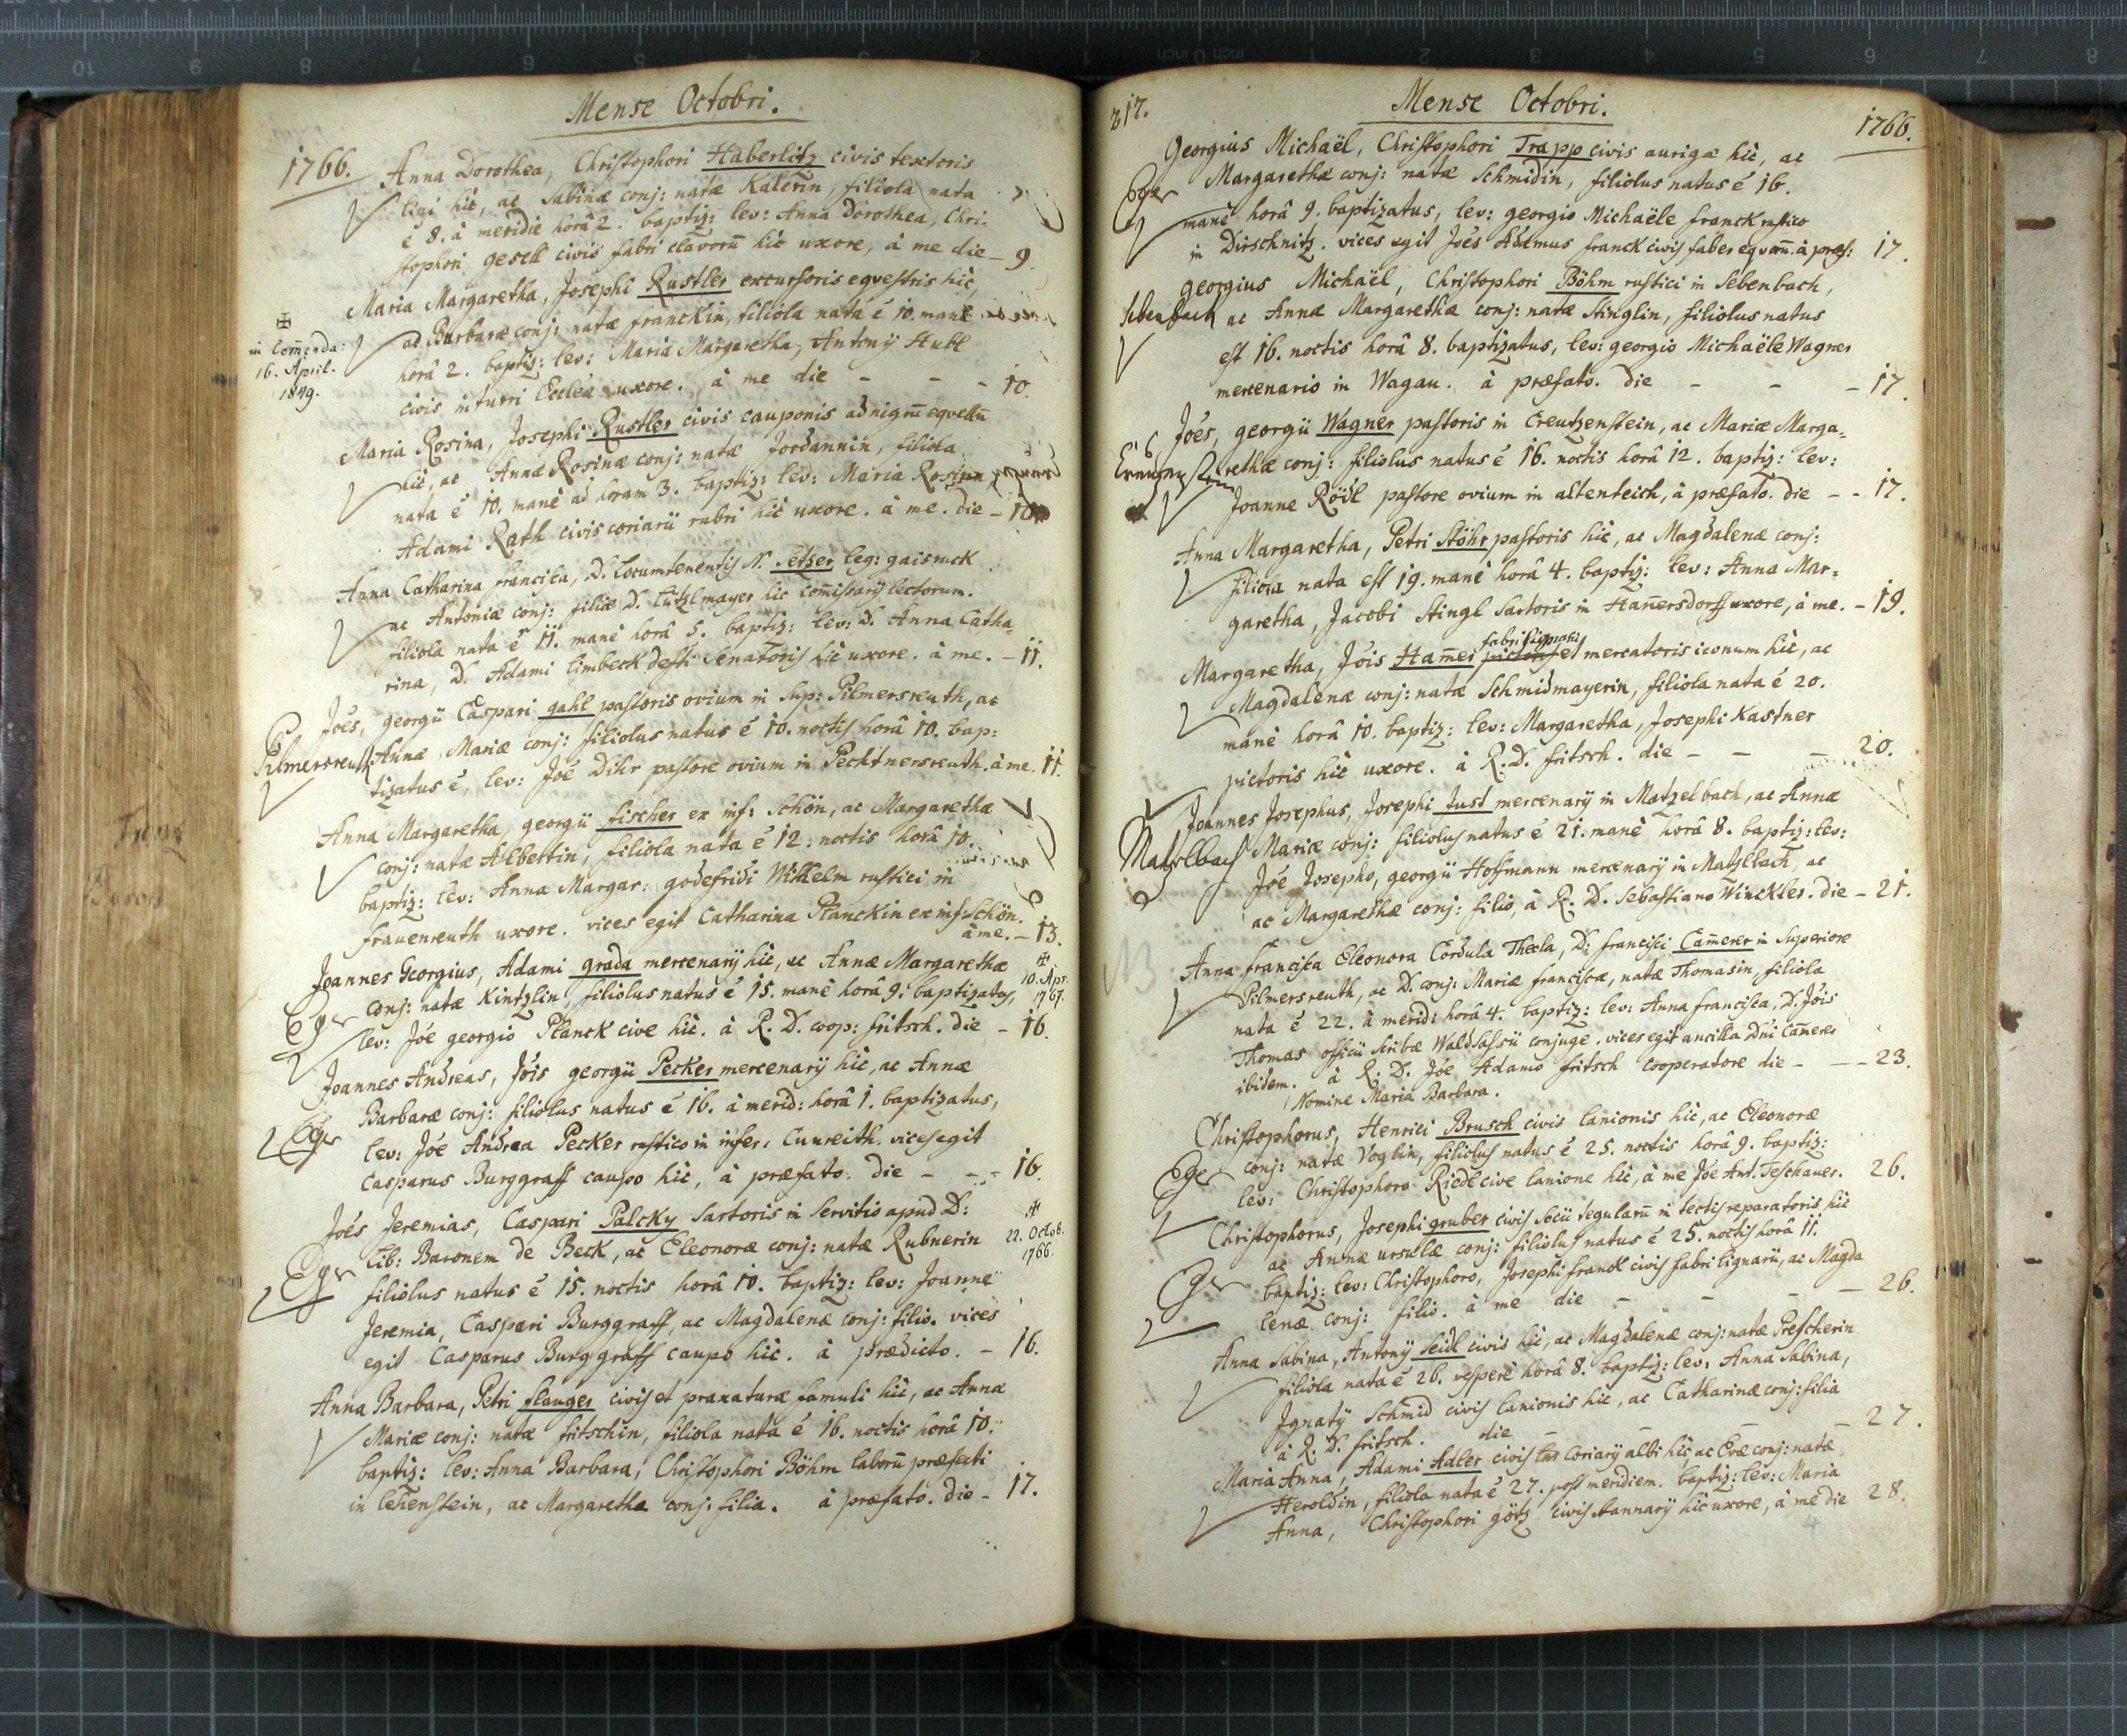 Mense Octobri.
1766. Anna Dorothea, Christophori Haberlitz civis textoris
lini hic, ac Sabinæ conj: natæ Kalerin, filiola nata
é 8. à meridie horâ 2. baptiz: lev: Anna Dorothea, Chri-
stophori gesell civis fabri clavorū hic uxore, à me die – 9.
Maria Margaretha, Josephi Rustler excursoris eqvestris hic,
ac Barbaræ conj: natæ franckin, filiola nata é 10. manè
✠
in Com̄enda:
16. April.
1849.
horâ 2. baptiz: lev: Maria Margaretha, Antonÿ Hubl
civis in turri Eccleæ uxore. à me die – – – 10.
Maria Rosina, Josephi Rustler civis cauponis ad nigrū eqvellū
hic, ac Annæ Rosinæ conj: natæ Jordannin, filiola
nata é 10. manè ad horam 3. baptiz: lev: Maria Rosina,
Adami Rath civis coriarii rubri hic uxore. à me. die – 10
Anna Catharina francisca, D. Locumtenentis N. Setzer leg: gaisruck
ac Antoniæ conj: filiæ D. Lützlmayer hic com̄issarÿ lectorum.
filiola nata é 11. manè horâ 5. baptiz: lev: D. Anna Catha-
rina, D. Adami Limbeck desti Senatoris hic uxore. à me. – 11.
Joés, georgii Caspari gahl pastoris ovium in sup: Pilmersreuth, ac
Pilmersreuth Annæ Mariæ conj: filiolus natus é 10. noctis horâ 10. bap-
tizatus é, lev: Joé Dihr pastore ovium in Pechtnersreuth. à me. 11.
Anna Margaretha, georgii fischer ex inf: Schön, ac Margarethæ
conj: natæ Albertin, filiola nata é 12: noctis horâ 10.
baptiz: lev: Anna Margar: godefridi Wilhelm rustici in
frauenreuth uxore. vices egit Catharina Planckin ex inf: Schön.
à me. – 13.
Joannes Georgius, Adami grada mercenarÿ hic, ac Annæ Margarethæ
✠
10. Apr.
1767.
Eger conj: natæ Kintzlin, filiolus natus é 15. manè horâ 9. baptizatus,
lev: Jóe georgio Planck cive hic. à R. D. coop: fritsch. die – 16.
Joannes Andreas, Jóis georgii Pecker mercenarÿ hic, ac Annæ
Barbaræ conj: filiolus natus é 16. à merid: horâ 1. baptizatus,
Eger lev: Jóe Andrea Pecker rustico in infer. Cunreith. vices egit
Casparus Burggraff caupo hic, à præfato. die – – – 16.
Joés Jeremias, Caspari Palcky sartoris in servitio apud D:
✠
22. Octob.
1766.
Eger Lib: Baronem de Beck, ac Eleonoræ conj: natæ Rubnerin
filiolus natus é 15. noctis horâ 10. baptiz: lev: Joanne
Jeremia, Caspari Burggraff, ac Magdalenæ conj: filio. vices
egit Casparus Burggraff caupo hic. à prædicto. – 16.
Anna Barbara, Petri flauger civis et praxaturæ famuli hic, ac Annæ
Mariæ conj: natæ fritschin, filiola nata é 16. noctis horâ 10.
baptiz: lev: Anna Barbara, Christophori Böhm laborū præfecti
in leHenstein, ac Margarethæ conj: filia. à præfato. die – 17.
217. Mense Octobri. 1766.
Georgius Michaël, Christophori Trapp civis aurigæ hic, ac
Eger Margarethæ conj: natæ Schmidin, filiolus natus é 16.
manè horâ 9. baptizatus, lev: georgio Michaële franck rustico
in Dirschnitz. vices egit Joés Adamus franck civis faber eqvom̄. à præf: 17.
georgius Michaël, Christophori Böhm rustici in Sebenbach,
Sebenbach ac Annæ Margarethæ conj: natæ Stinglin, filiolus natus
est 16. noctis horâ 8. baptizatus, lev: georgio Michaële Wagner
mercenario in Wagau. à præfato. die – – – 17.
Joés, georgii Wagner pastoris in Creutzenstein, ac Mariæ Marga-
rethæ conj: filiolus natus é 16. noctis horâ 12. baptiz: lev:
Joanne Rödl pastore ovium in altenteich, à præfato. die – – 17.
Anna Margaretha, Petri Stöhr pastoris hic, ac Magdalenæ conj:
filiola nata est 19. manè horâ 4. baptiz: lev: Anna Mar-
garetha, Jacobi Stingl sartoris in Ham̄ersdorff uxore, à me. – 19.
fabri lignarii
Margaretha, Jóis Ham̄er pictoris et mercatoris iconum hic, ac
Magdalenæ conj: natæ Schmidmayerin, filiola nata é 20.
manè horâ 10. baptiz: lev: Margaretha, Josephi Kastner
pictoris hic uxore. à R. D. fritsch. die – – – 20.
Joannes Josephus, Josephi Just mercenarÿ in Matzelbach, ac Annæ
Matzelbach Mariæ conj: filiolus natus é 21. manè horâ 8. baptiz: lev:
Jóe Josepho, georgii Hoffmann mercenarÿ in Matzlbach, ac
ac Margarethæ conj: filio, à R. D. Sebastiano Winckler. die – 21.
Anna francisca Eleonora Cordula Thecla, D: francisci Cam̄erer in Superiore
Pilmersreuth, ac D. conj: Mariæ franciscæ, natæ Thomasin, filiola
nata é 22. à merid: horâ 4. baptiz: lev: Anna francisca, D. Jóis
Thomas officii scribæ Waldsassii conjuge. vices egit ancilla Dn̄i Cam̄erer
ibidem. à R. D. Jóe Adamo fritsch Cooperatore die – – – 23.
Nomine Maria Barbara.
Christophorus, Henrici Brusch civis lanionis hic, ac Eleonoræ
Eger conj: natæ Voglin, filiolus natus é 25. noctis horâ 9. baptiz:
lev: Christophoro Riedl cive lanione hic, à me Jóe Ant. Teschauer. 26.
Christophorus, Josephi gruber civis socii tegularū in tectis reparatoris hic
ac Annæ ursulæ conj: filiolus natus é 25. noctis horâ 11.
Eger baptiz: lev: Christophoro, Josephi franck civis fabri lignarii, ac Magda
lenæ conj: filio. à me die – – – – 26.
Anna Sabina, Antonÿ Seidl civis hic, ac Magdalenæ conj: natæ Prescherin
filiola nata é 26. vesperè horâ 8. baptiz: lev: Anna Sabina,
Ignatÿ Schmid civis lanionis hic, ac Catharinæ conj: filia
à R. D. fritsch. die – – – 27.
Maria Anna, Adami Adler civis coriarÿ albi hic, ac Evæ conj: natæ
Heroldin, filiola nata é 27. post meridiem. baptiz: lev: Maria
Anna, Christophori götz civis stannarÿ hic uxore, à me die 28.